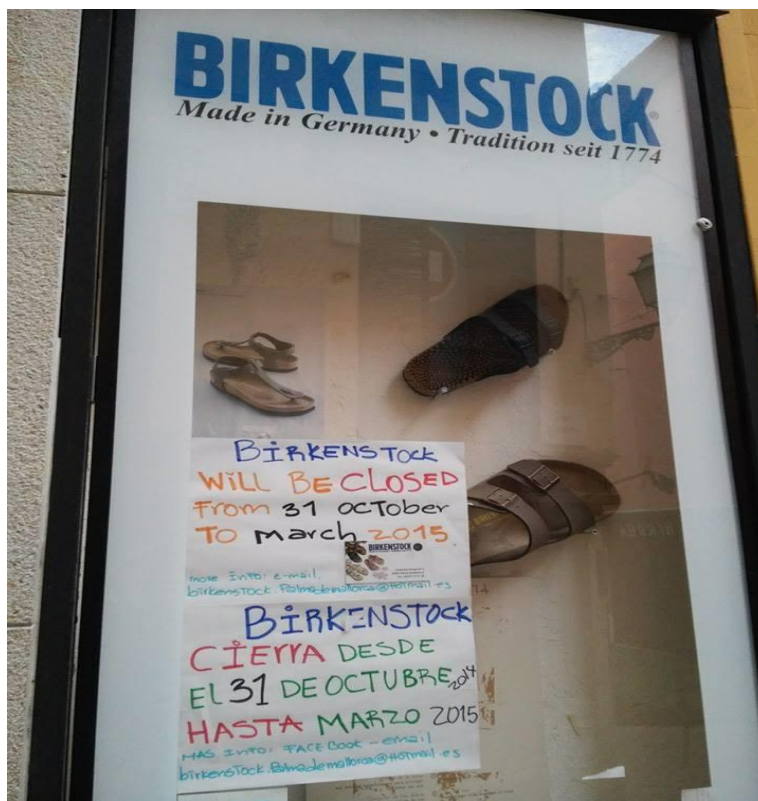 BIRKENSTOCK
Made in Germany • Tradition seit 1774
BIRKENSTOCK
WILL BE CLOSED
From 31 OCTober
TO march 2015
BIRKENSTOCK
more Info: e-mail
birkenstock.Palmademallorca@Hotmail.es
BIRKENSTOCK
CIERRA DESDE
EL 31 DE OCTUBRE 2014
HASTA MARZO 2015
MAS INFO: FACEBOOK - email
birkenstock.Palmademallorca@Hotmail.es